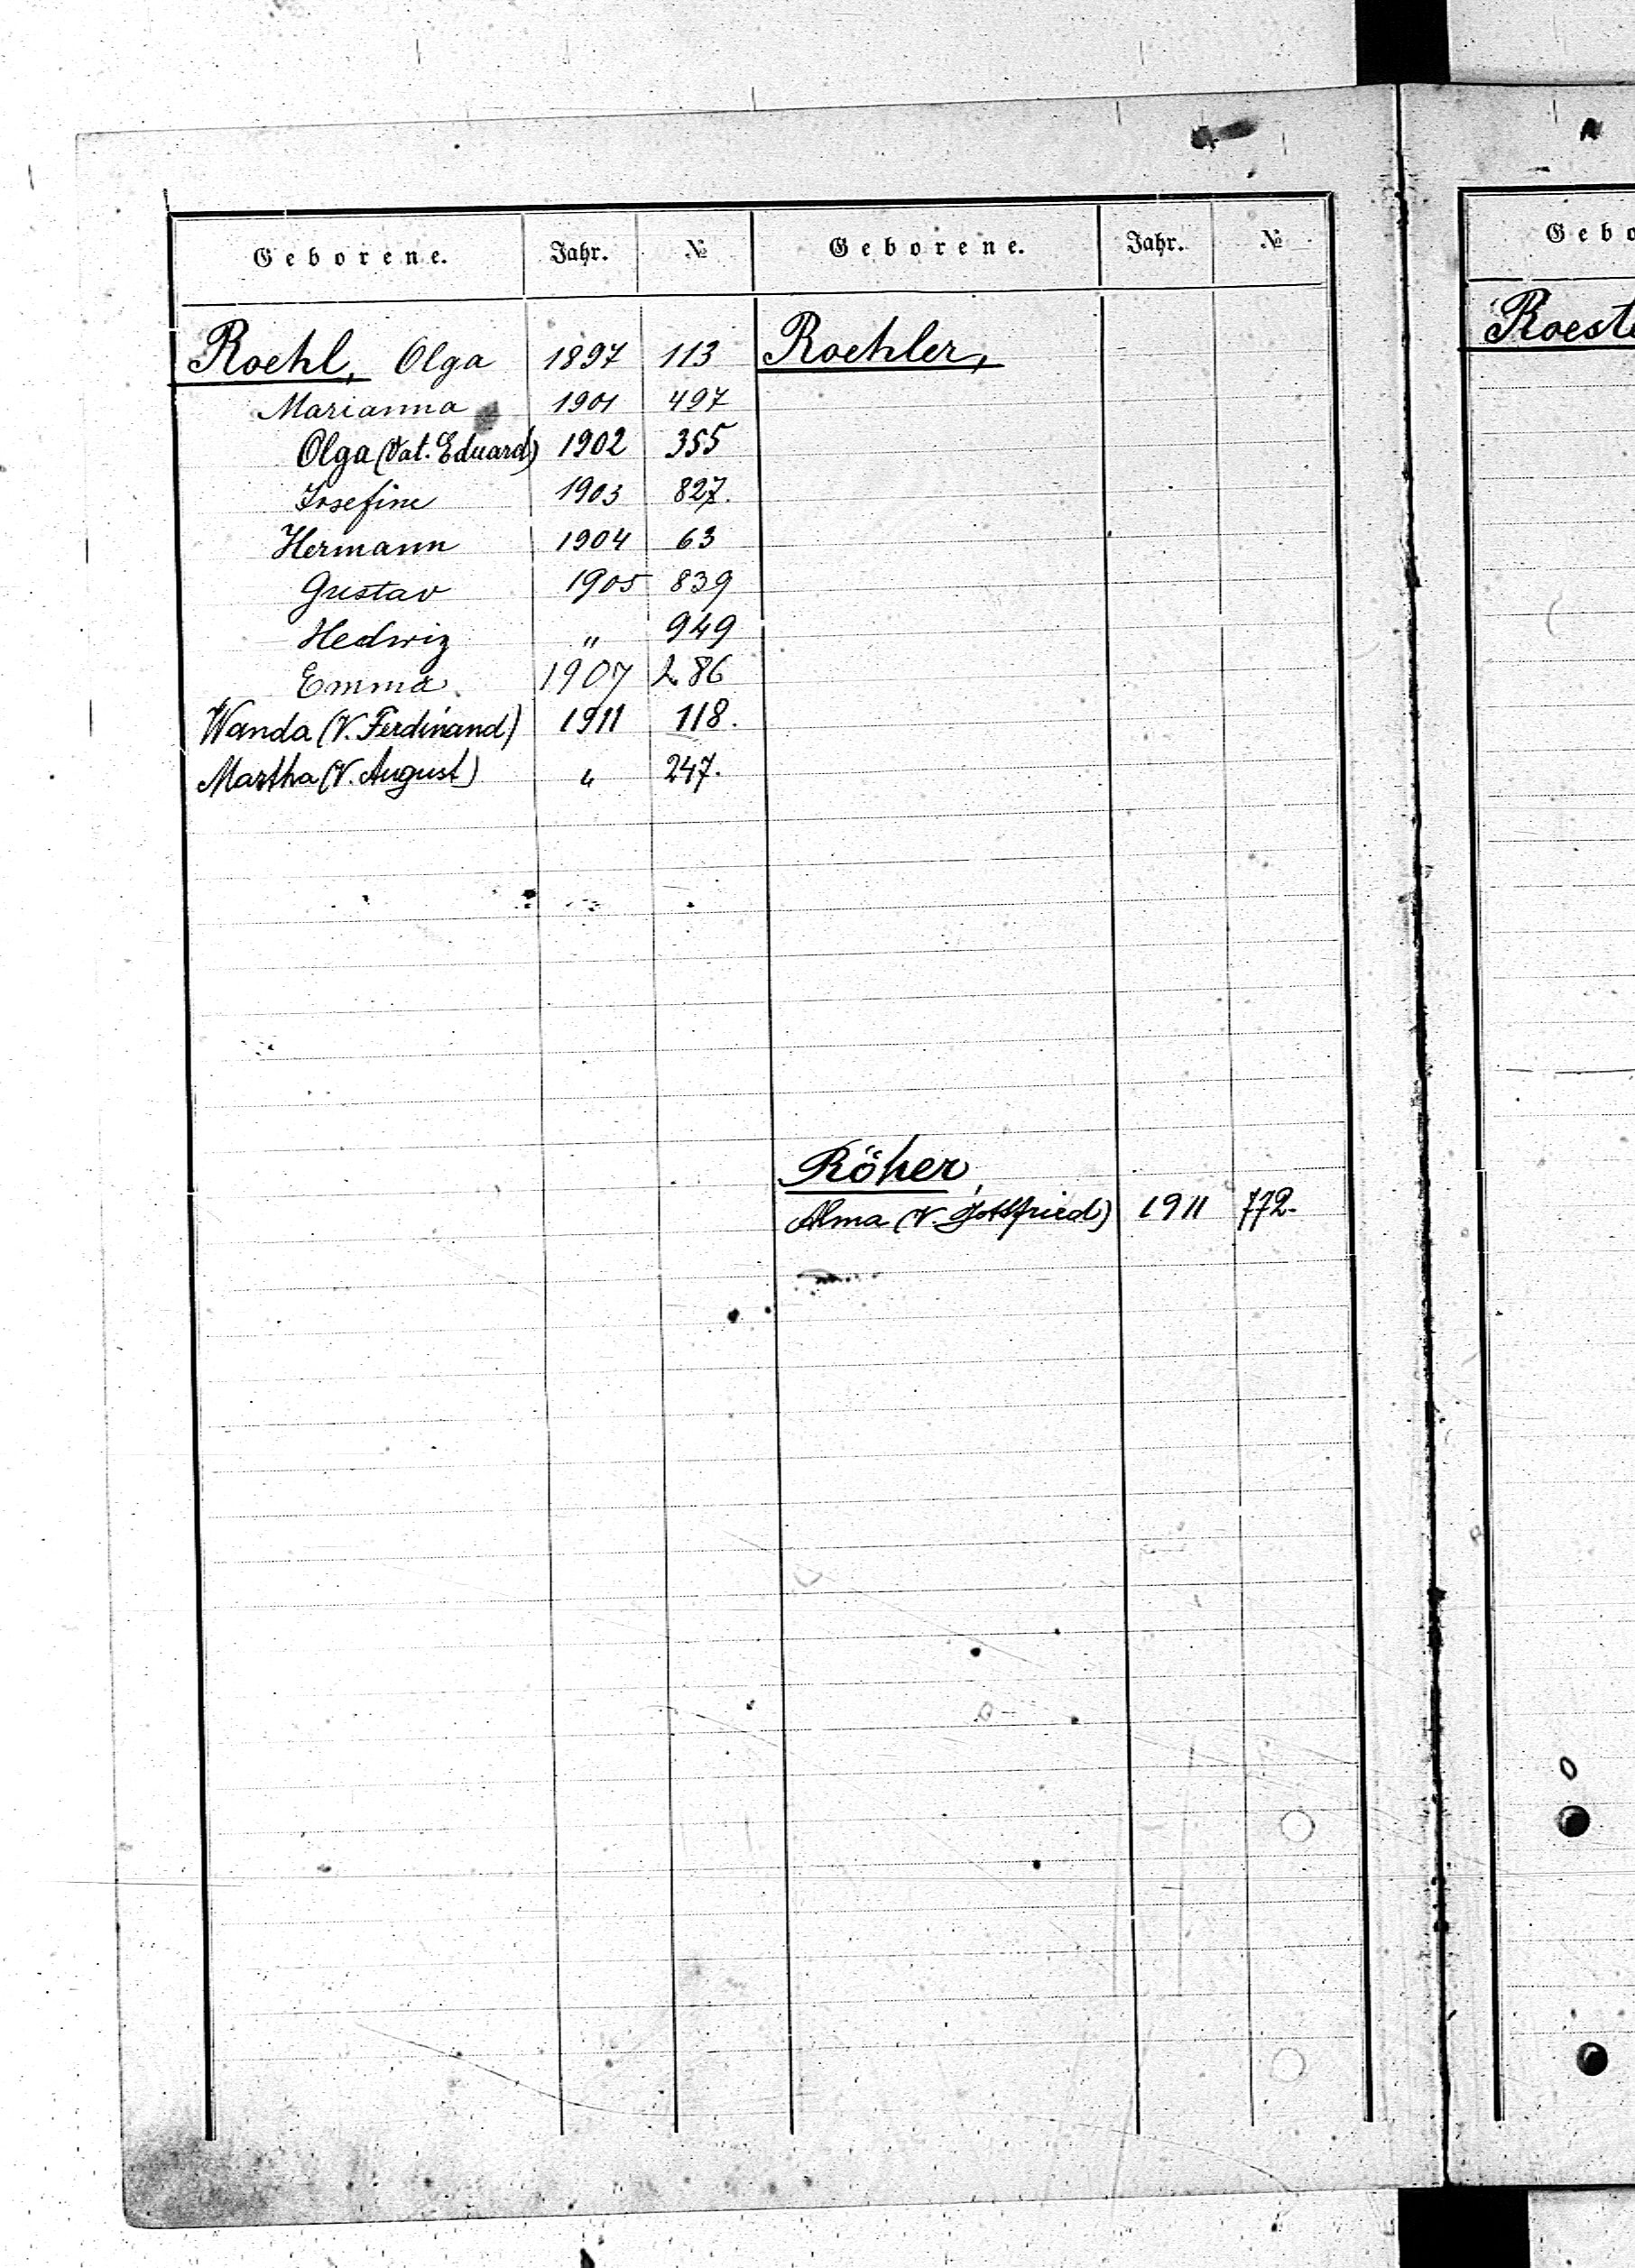 Geborene. Jahr. №
Roehl, Olga 1897 113
Marianna 1901 497
Olga (Vat. Eduard) 1902 355
Josefine 1903 827.
Hermann 1904 63
Gustav 1905 839
Hedwig " 949
Emma 1907 286
Wanda (V. Ferdinand) 1911 118.
Martha (V. August) " 247.
Geborene. Jahr. №
Roehler,
Röher,
Alma (V. Gottfried) 1911 772.
Gebo
Roeste